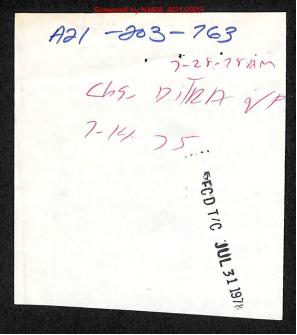 Scanned by NARA, 9/21/2023
A21-203-763
7-28-78 AM
Chg.
7-14-75
RECD T/C JUL 31 1978